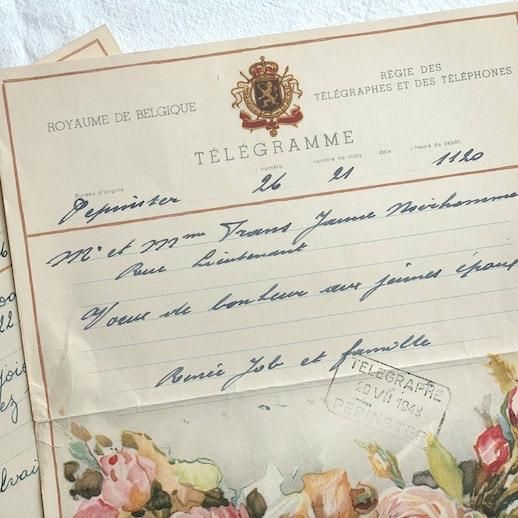 ROYAUME DE BELGIQUE
RÉGIE DES
TÉLÉGRAPHES ET DES TÉLÉPHONES
TÉLÉGRAMME
Bureau d'origine
numéro
nombre de mots
date
heure de dépôt
Pepinster 26 21 1120
Mr et Mme Frans Jaune Noirhomme
Rue Lieutenant
Voeux de bonheur aux jeunes époux
Renée Job et famille
TELEGRAPHE
20 VII 1949
PEPINSTER
22
ez